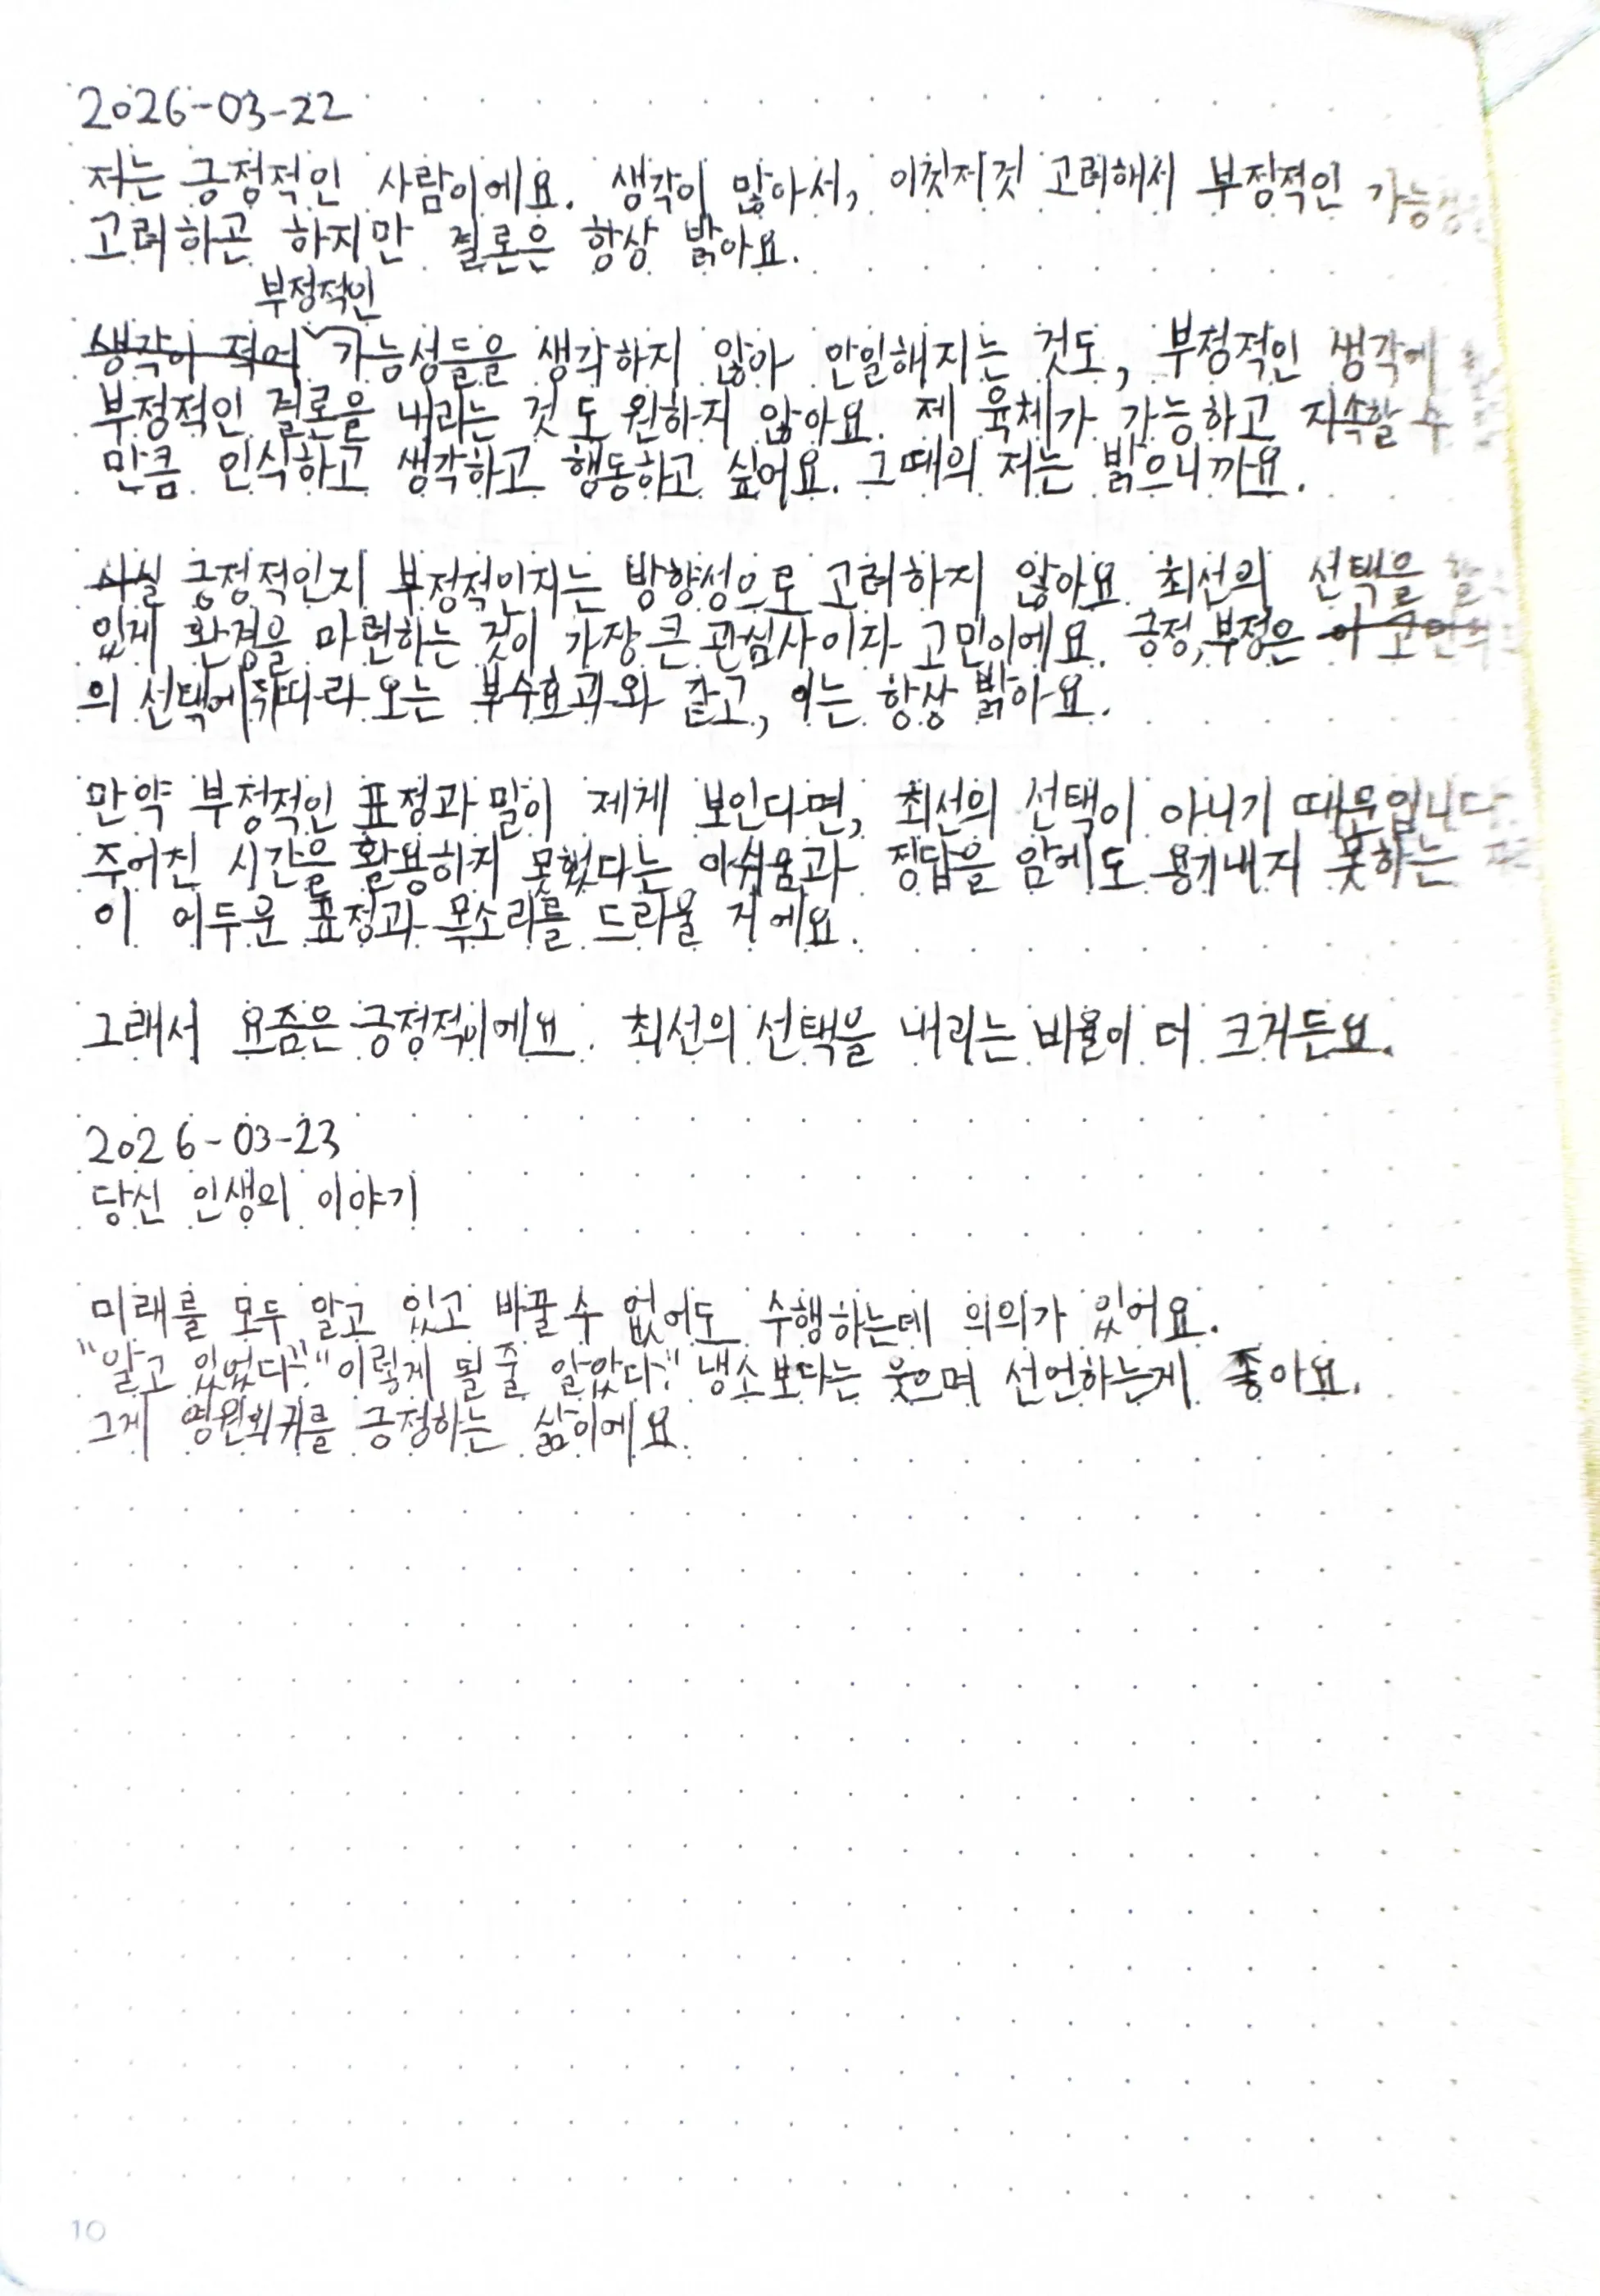 2026-03-22
저는 긍정적인 사람이에요. 생각이 많아서, 이것저것 고려해서 부정적인 가능성을
고려하곤 하지만 결론은 항상 밝아요.
부정적인
생각이 적여 가능성들을 생각하지 않아 안일해지는 것도, 부정적인 생각에
부정적인 결론을 내리는 것도 원하지 않아요. 제 육체가 가능하고 지속할 수
만큼 인식하고 생각하고 행동하고 싶어요. 그때의 저는 밝으니까요.
사실 긍정적인지 부정적인지는 방향성으로 고려하지 않아요. 최선의 선택을 할
있게 환경을 마련하는 것이 가장 큰 관심사이자 고민이에요. 긍정, 부정은 이 고민의
의 선택에 따라오는 부수효과와 같고, 이는 항상 밝아요.
만약 부정적인 표정과 말이 제게 보인다면, 최선의 선택이 아니기 때문입니다.
주어진 시간을 활용하지 못했다는 아쉬움과 정답을 앎에도 용기내지 못하는
이 어두운 표정과 목소리를 드리울 거에요.
그래서 요즘은 긍정적이에요. 최선의 선택을 내리는 비율이 더 크거든요.
2026-03-23
당신 인생의 이야기
미래를 모두 알고 있고 바꿀 수 없어도 수행하는데 의의가 있어요.
"알고 있었다." "이렇게 될 줄 알았다." 냉소보다는 웃으며 선언하는게 좋아요.
그게 영원회귀를 긍정하는 삶이에요.
10